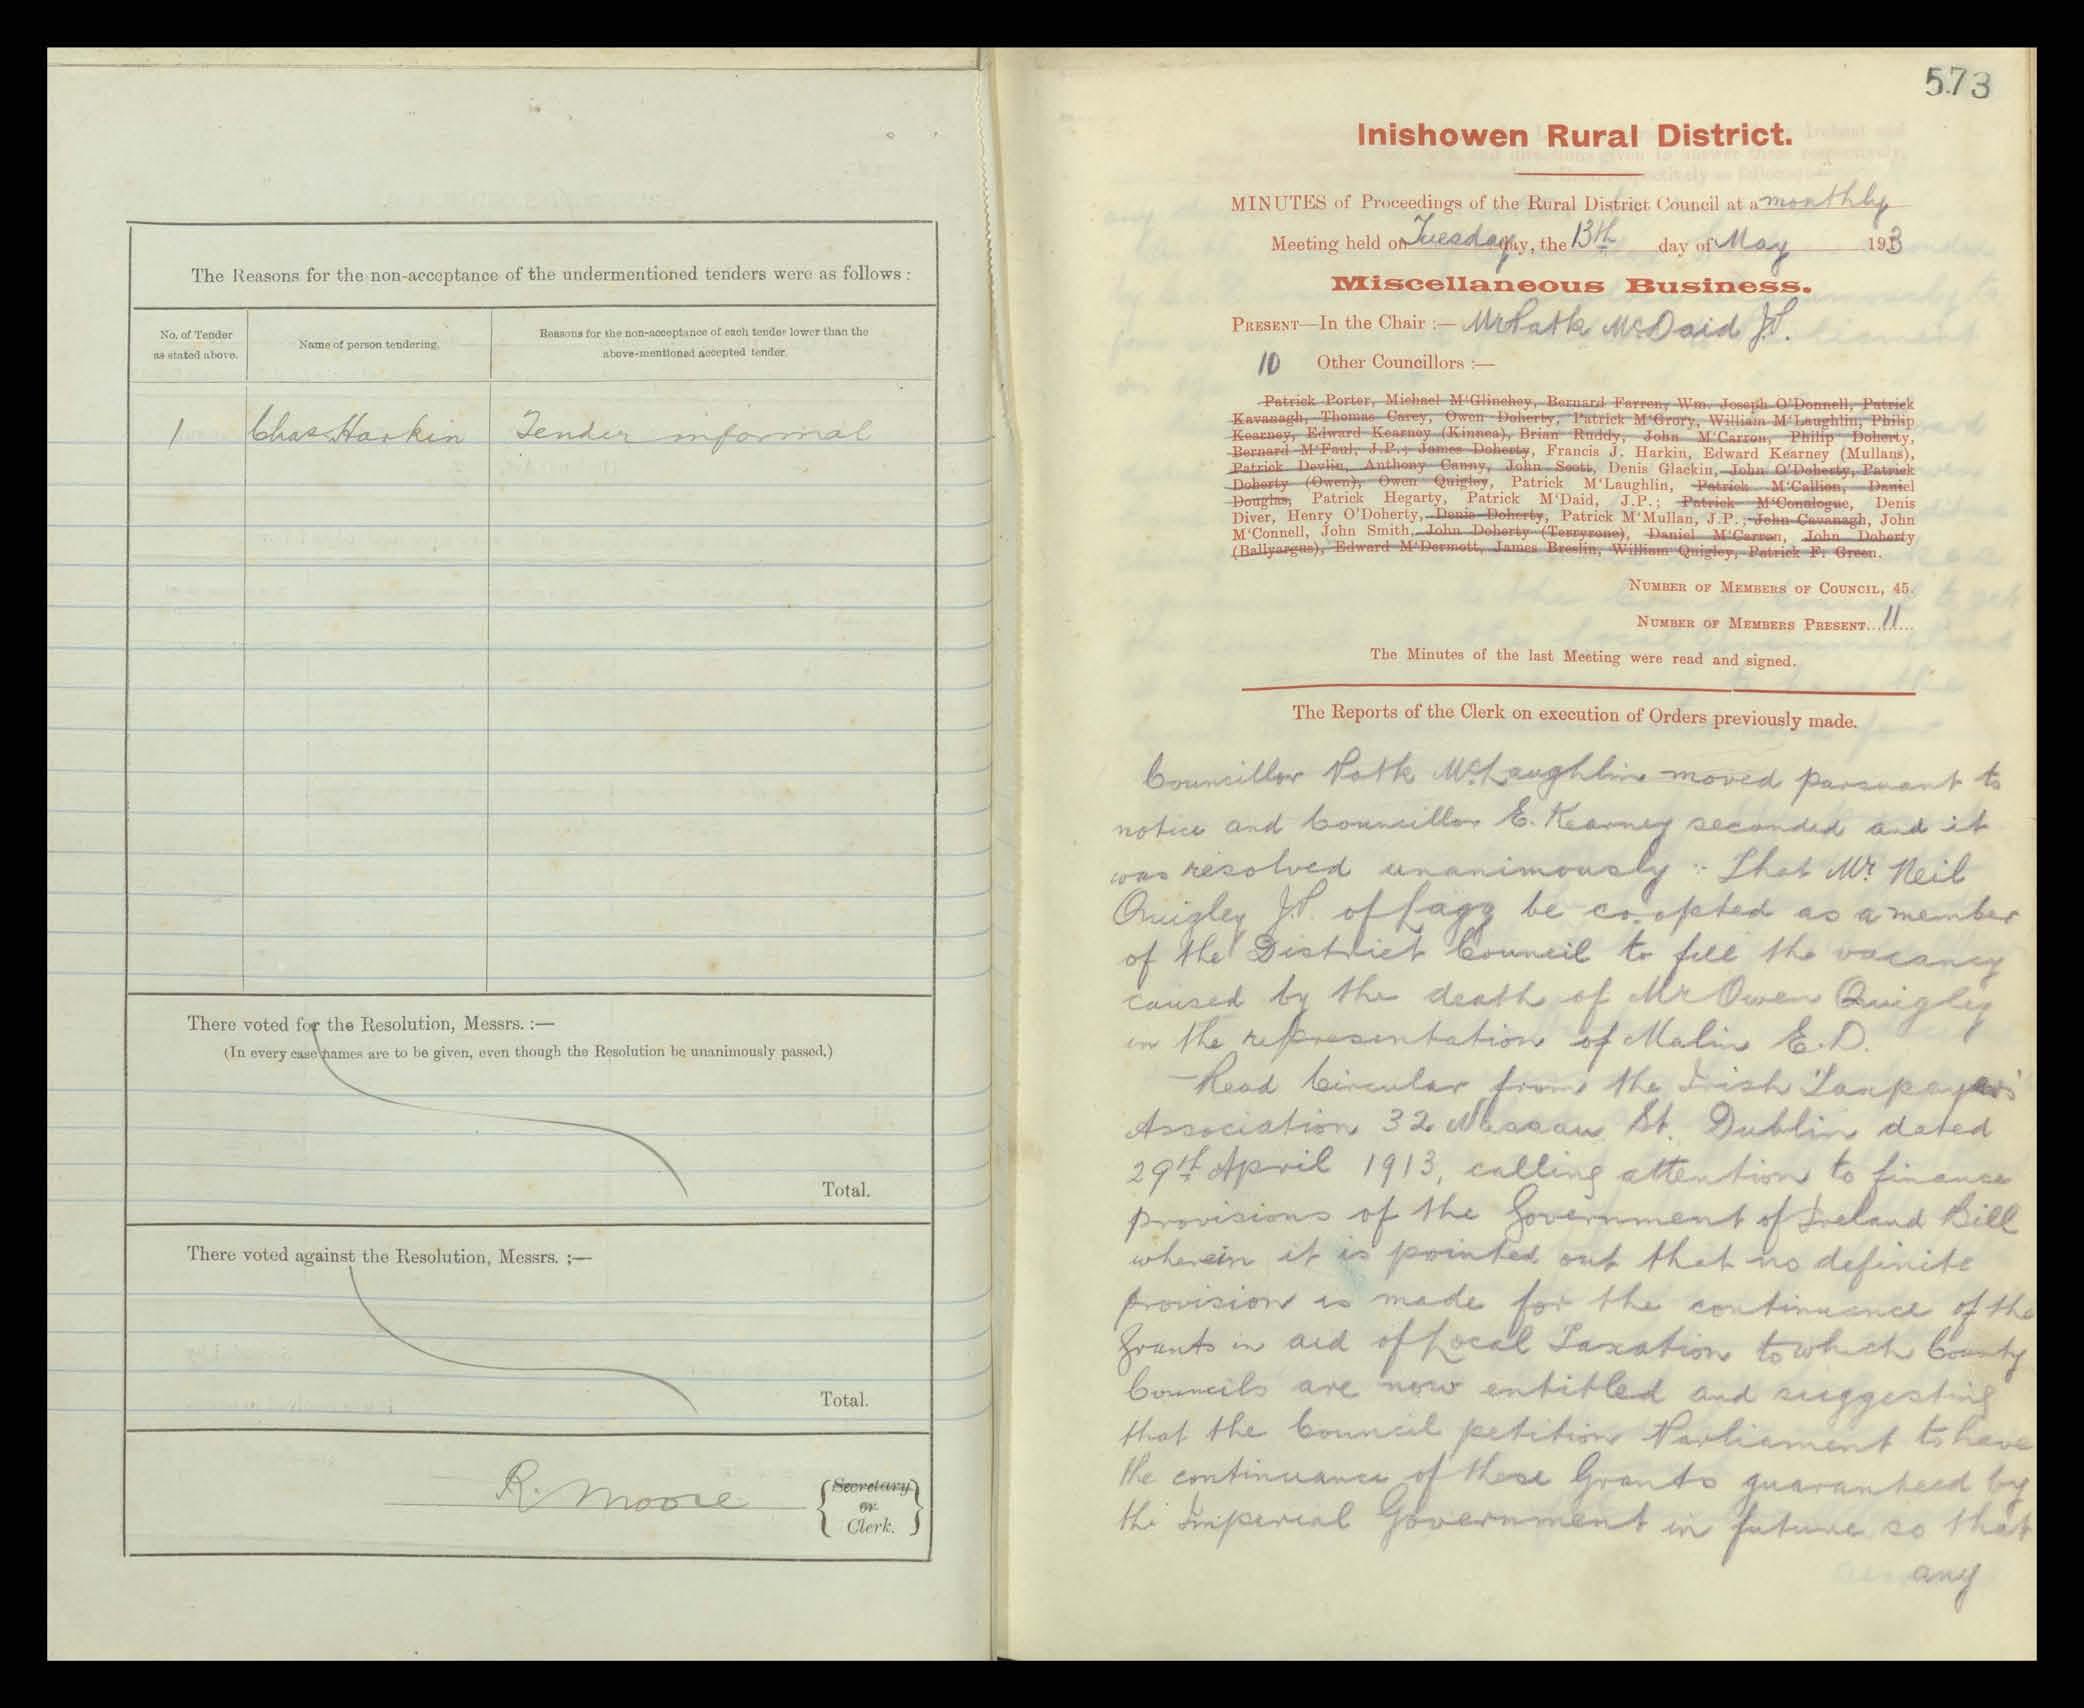 The Reasons for the non-acceptance of the undermentioned tenders were as follows :
No. of Tender
as stated above.
Name of person tendering.
Reasons for the non-acceptance of each tender lower than the
above-mentioned accepted tender.
1 Chas Harkin Tender informal
There voted for the Resolution, Messrs. :—
(In every case names are to be given, even though the Resolution be unanimously passed.)
Total.
There voted against the Resolution, Messrs. ;—
Total.
R. Moore
Secretary
or
Clerk.
573
Inishowen Rural District.
MINUTES of Proceedings of the Rural District Council at a monthly
Meeting held on Tuesday day, the 13th day of May 1913
Miscellaneous Business.
PRESENT—In the Chair :— Mr Patk McDaid J.P.
10 Other Councillors :—
Patrick Porter, Michael M'Glinchey, Bernard Farren, Wm. Joseph O'Donnell, Patrick
Kavanagh, Thomas Carey, Owen Doherty, Patrick M'Grory, William M'Laughlin, Philip
Kearney, Edward Kearney (Kinnea), Brian Ruddy, John M'Carron, Philip Doherty,
Bernard M'Faul, J.P.; James Doherty, Francis J. Harkin, Edward Kearney (Mullans),
Patrick Devlin, Anthony Canny, John Scott, Denis Glackin, John O'Doherty, Patrick
Doherty (Owen), Owen Quigley, Patrick M'Laughlin, Patrick M'Callion, Daniel
Douglas, Patrick Hegarty, Patrick M'Daid, J.P.; Patrick M'Conalogue, Denis
Diver, Henry O'Doherty, Denis Doherty, Patrick M'Mullan, J.P.; John Cavanagh, John
M'Connell, John Smith, John Doherty (Terryrone), Daniel M'Carron, John Doherty
(Ballyargus), Edward M'Dermott, James Breslin, William Quigley, Patrick F. Green.
NUMBER OF MEMBERS OF COUNCIL, 45.
NUMBER OF MEMBERS PRESENT...11...
The Minutes of the last Meeting were read and signed.
The Reports of the Clerk on execution of Orders previously made.
Councillor Patk McLaughlin moved pursuant to
notice and Councillor E. Kearney seconded and it
was resolved unanimously :- That Mr. Neil
Quigley J.P. of Lagg be co-opted as a member
of the District Council to fill the vacancy
caused by the death of Mr Owen Quigley
in the representation of Malin E.D.
—Read Circular from the Irish Taxpayers'
Association 32 Nassau St. Dublin dated
29th April 1913, calling attention to finance
provisions of the Government of Ireland Bill
wherein it is pointed out that no definite
provision is made for the continuance of the
Grants in aid of Local Taxation to which County
Councils are now entitled and suggesting
that the Council petition Parliament to have
the continuance of these Grants guaranteed by
the Imperial Government in future so that
any